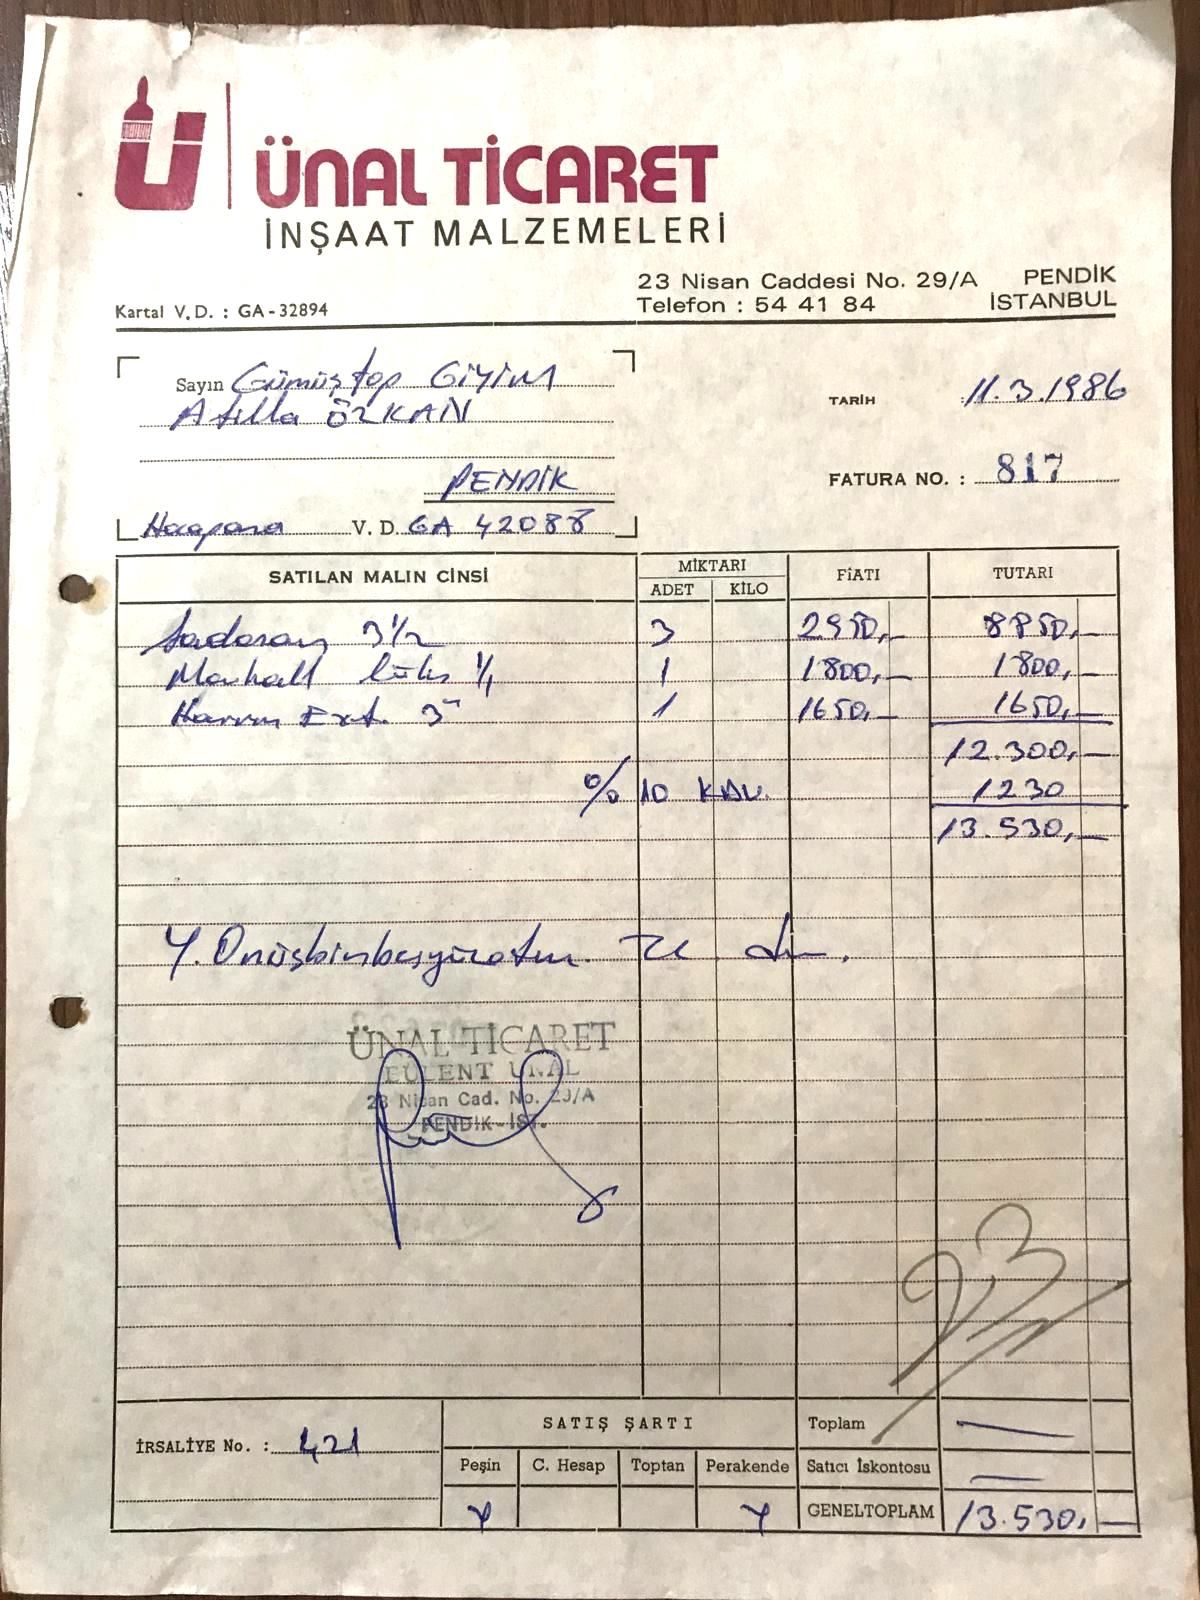 ÜNAL TİCARET
İNŞAAT MALZEMELERİ
23 Nisan Caddesi No. 29/A PENDİK
Kartal V.D. : GA-32894 Telefon : 54 41 84 İSTANBUL
Sayın Gümüştop GİYİM
Atilla ÖZKAN
TARİH : 11.3.1986
PENDİK
FATURA NO. : 817
V. D. GA 42088
SATILAN MALIN CİNSİ MİKTARI FİATI TUTARI
ADET KİLO
Sadosan 3½ 3 2950,- 8850,-
Marshall lüks 1/1 1 1800,- 1800,-
Ext. 3 1 1650,- 1650,-
12.300,-
% 10 KDV. 1230
13.530,-
Y. Onüçbinbeşyüzotuz. TL. dır.
ÜNAL TİCARET
BÜLENT ÜNAL
23 Nisan Cad. No. 29/A
PENDİK-İST.
23
İRSALİYE No. : 421
SATIŞ ŞARTI
Toplam —
Peşin C. Hesap Toptan Perakende Satıcı İskontosu —
Y Y GENELTOPLAM 13.530,-